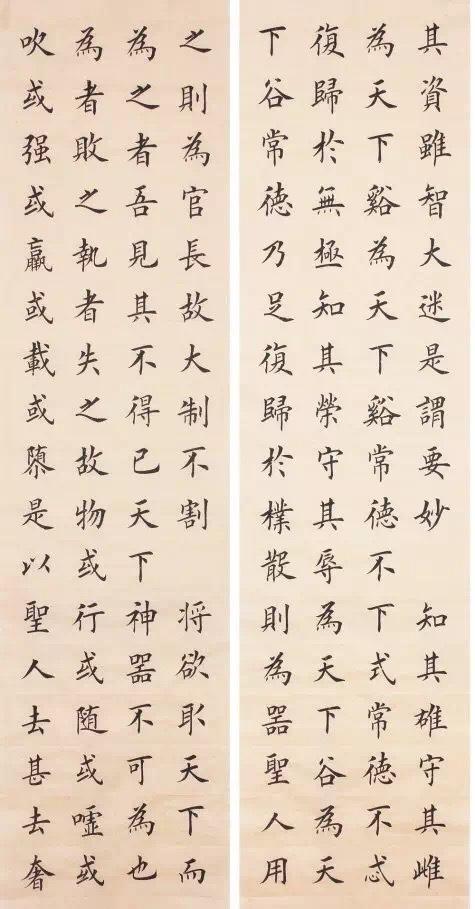 其資雖智大迷是謂要妙　知其雄守其雌
為天下谿為天下谿常德不下式常德不忒
復歸於無極知其榮守其辱為天下谷為天
下谷常德乃足復歸於樸散則為噐聖人用
之則為官長故大制不割　将欲取天下而
為之者吾見其不得已天下神噐不可為也
為者敗之執者失之故物或行或随或嘘或
吹或强或羸或載或隳是以聖人去甚去奢